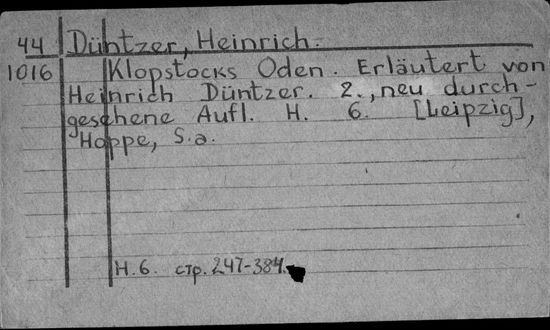 44 Düntzer, Heinrich.
1016 Klopstocks Oden. Erläutert von
Heinrich Düntzer. 2., neu durch-
gesehene Aufl. H. 6. [Leipzig],
Hoppe, S.a.
H.6. стр. 247-384.